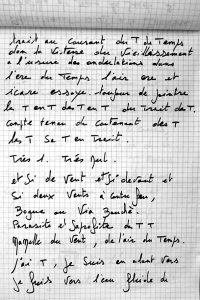 trait au courant du T du Temps
dans la vistesse du vieillissement
à l'usure des ondulations dans
l'ère du Temps l'air ere et
icare essaye toujours de joindre
la T en T de T en T du Trait de T.
compte tenu du contenant des T
las T Sa T en Trait.
Très 1. Très nul.
et Si de Vent et Si devant et
Si deux Vents à contre feu,
Bogue au Via Bouché.
Parasite et Saprofite du T T
Mamelle du Vent, de l'air du Temps.
J'ai T, je suis en allant vers
je suis vers l'eau fluide du